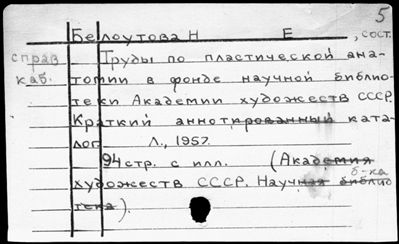 5
Белоутова Н Е , сост.
справ. Труды по пластической ана-
каб. томии в фонде научной библио-
теки Академии художеств СССР.
Краткий аннотированный ката-
лог Л., 1957.
94 стр. с илл. (Академия
художеств СССР. Научная б-ка библио
тека).